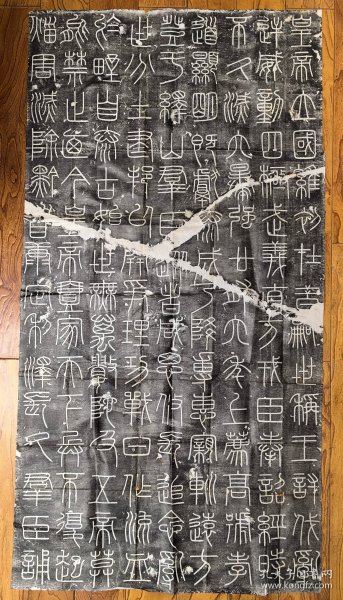 皇帝立國維初在昔嗣世稱王討伐亂
逆威動四極武義直方戎臣奉詔經時
不久滅六暴強廿有六年上薦高號孝
道顯明既獻泰成乃降尃惠親巡遠方
登于繹山群臣從者咸思攸長追念亂
世分土建邦以開爭理功戰日作流血
於野自泰古始世無萬數陀及五帝莫
能禁止乃今皇帝壹家天下兵不復起
災害滅除黔首康定利澤長久群臣誦